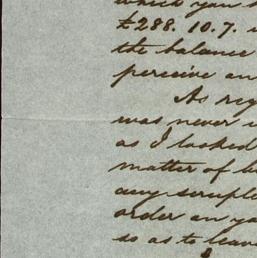 which you
£288. 10. 7.
the balance
perceive an
As reg
was never
as I looked
matter of b
any scruple
order on yo
so as to leav